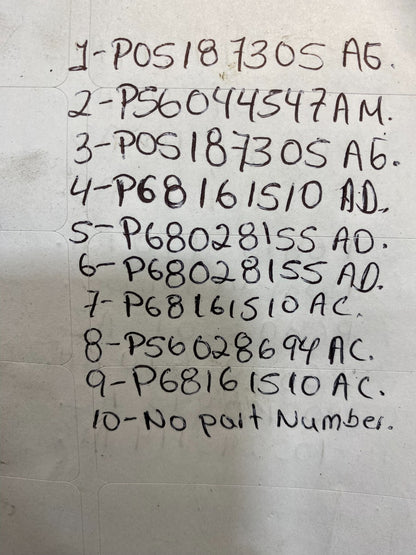 1-P05187305 AG.
2-P56044547AM.
3-P05187305 AG.
4-P68161510 AD.
5-P68028155 AD.
6-P68028155 AD.
7-P68161510 AC.
8-P56028694 AC.
9-P68161510 AC.
10-No part Number.